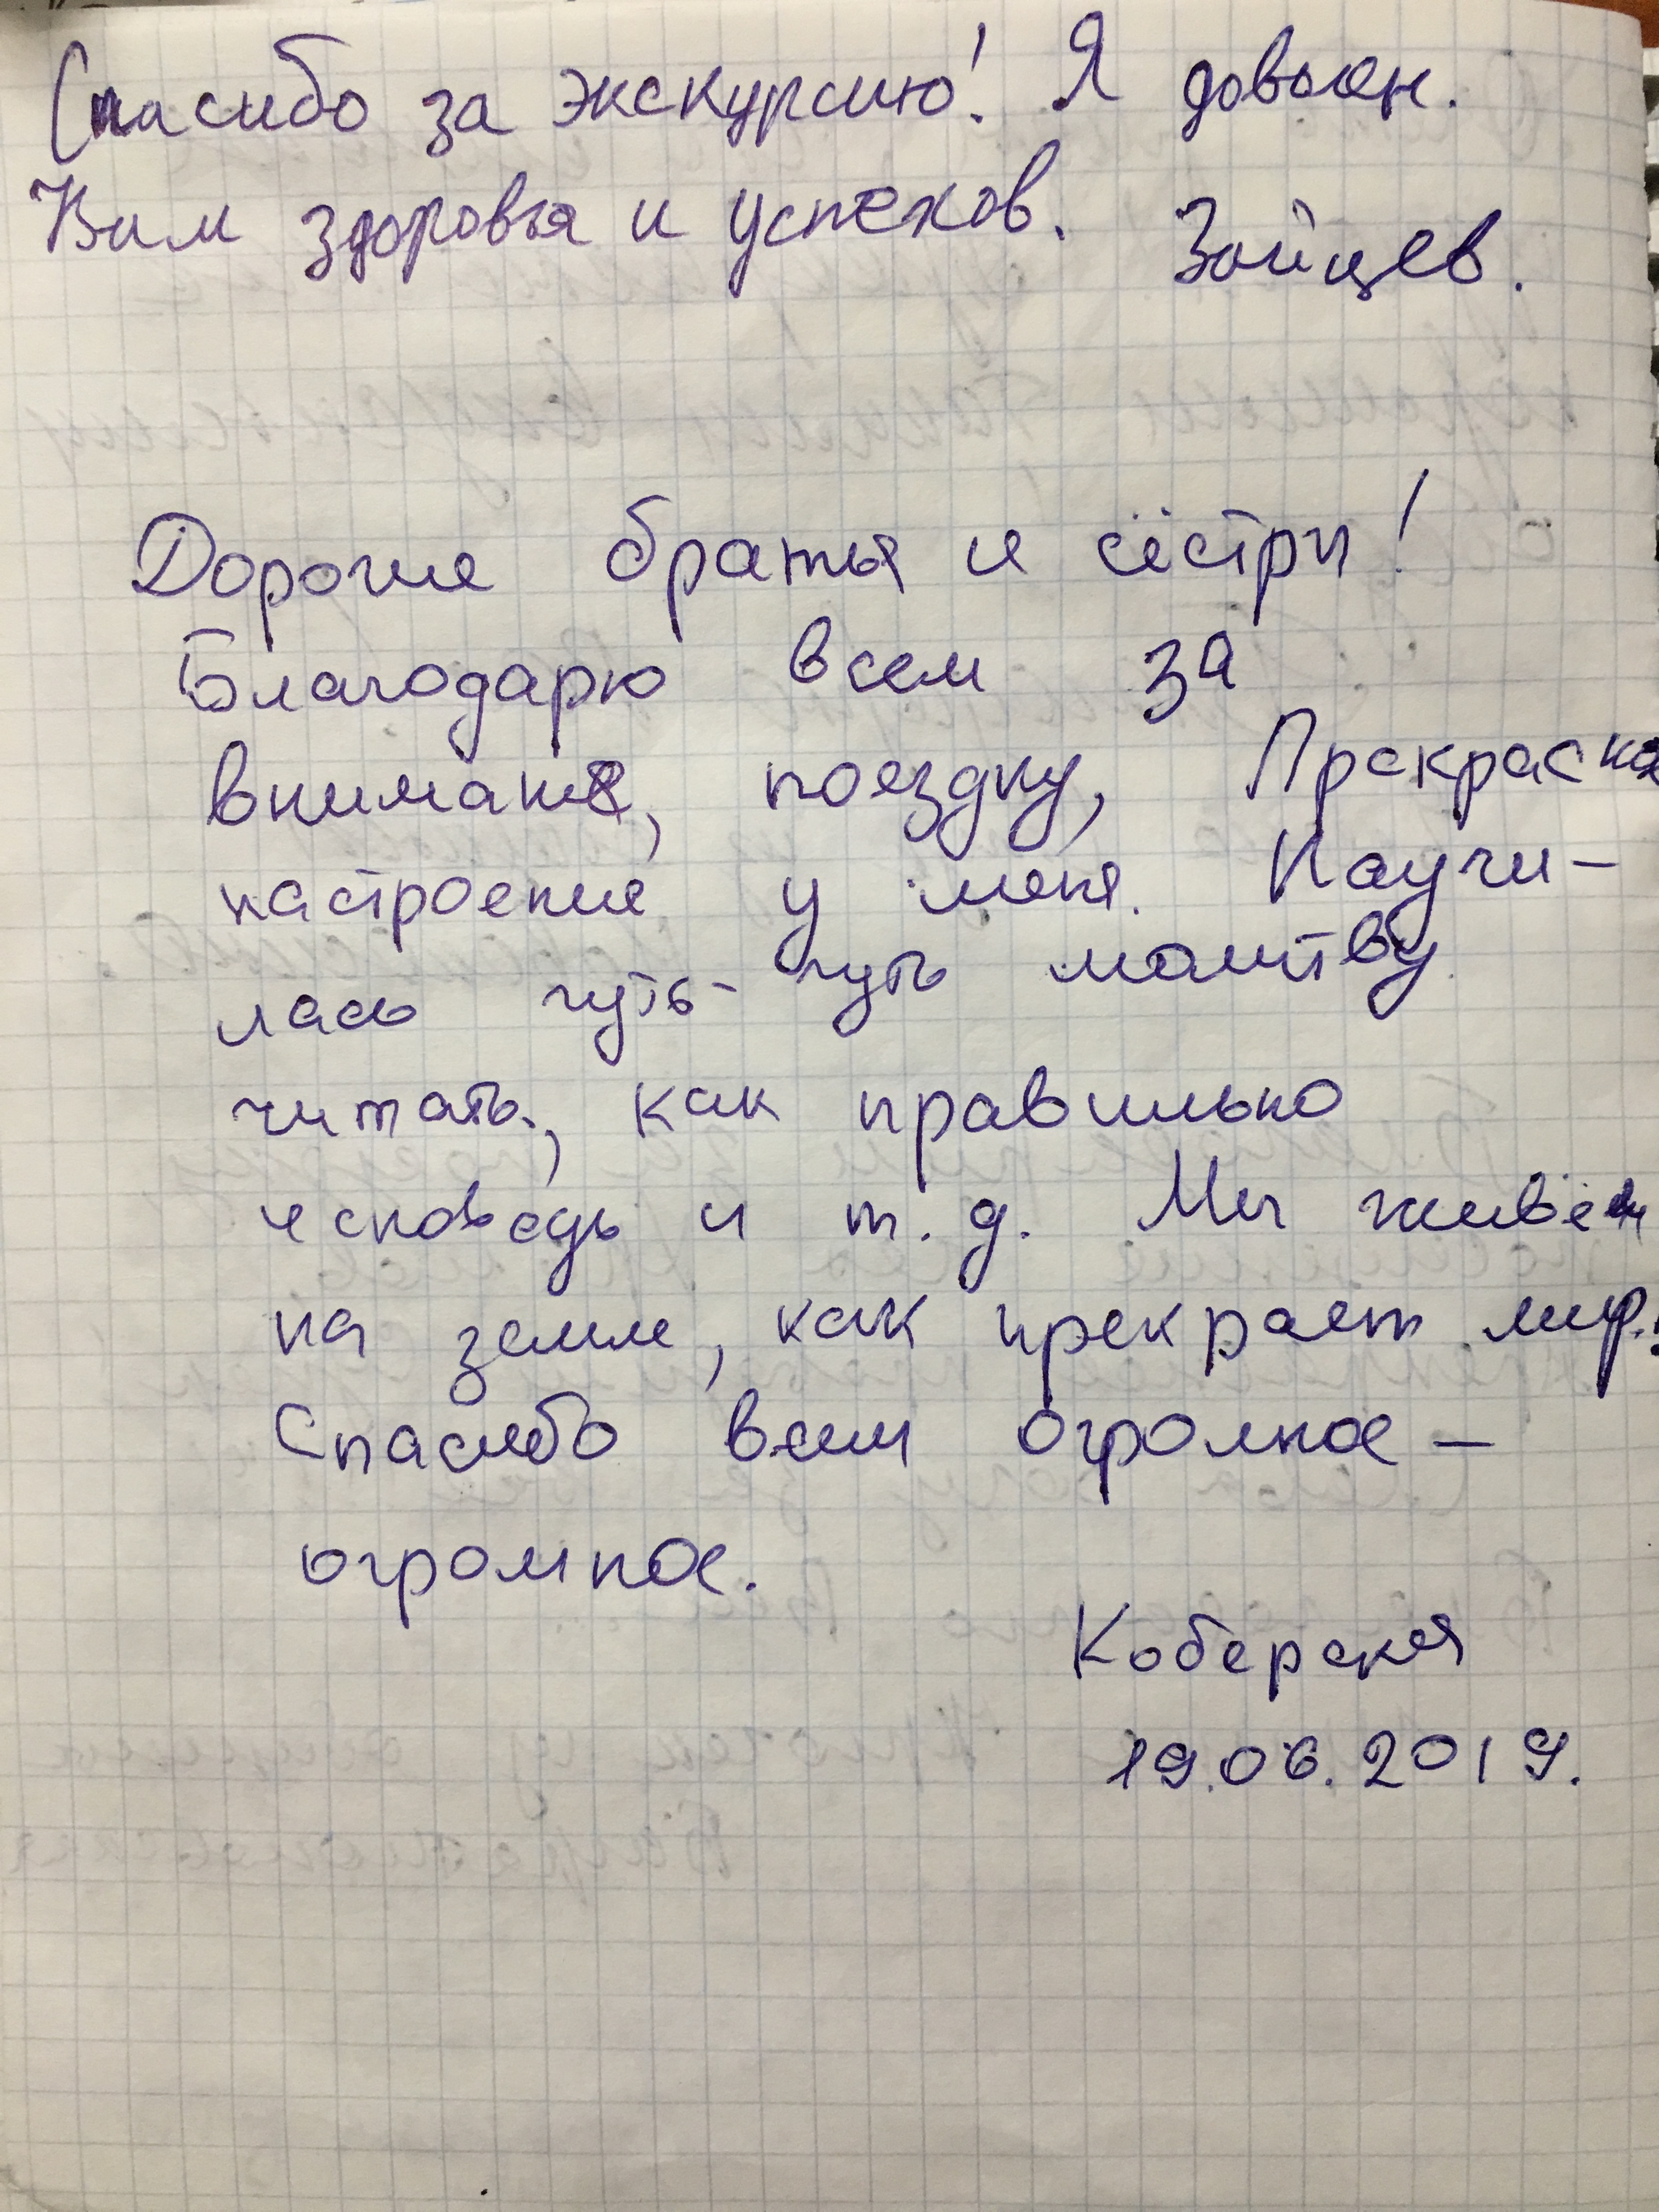 Спасибо за экскурсию! Я доволен.
Вам здоровья и успехов. Зайцев.
Дорогие братья и сёстры!
Благодарю всем за
внимание, поездку, Прекрасна
настроение у меня. Научи-
лась чуть-чуть молитву
читать, как правильно
исповедь и т. д. Мы живём
на земле, как прекрает мир!
Спасибо всем огромное -
огромное.
Коберская
19.06.2019.